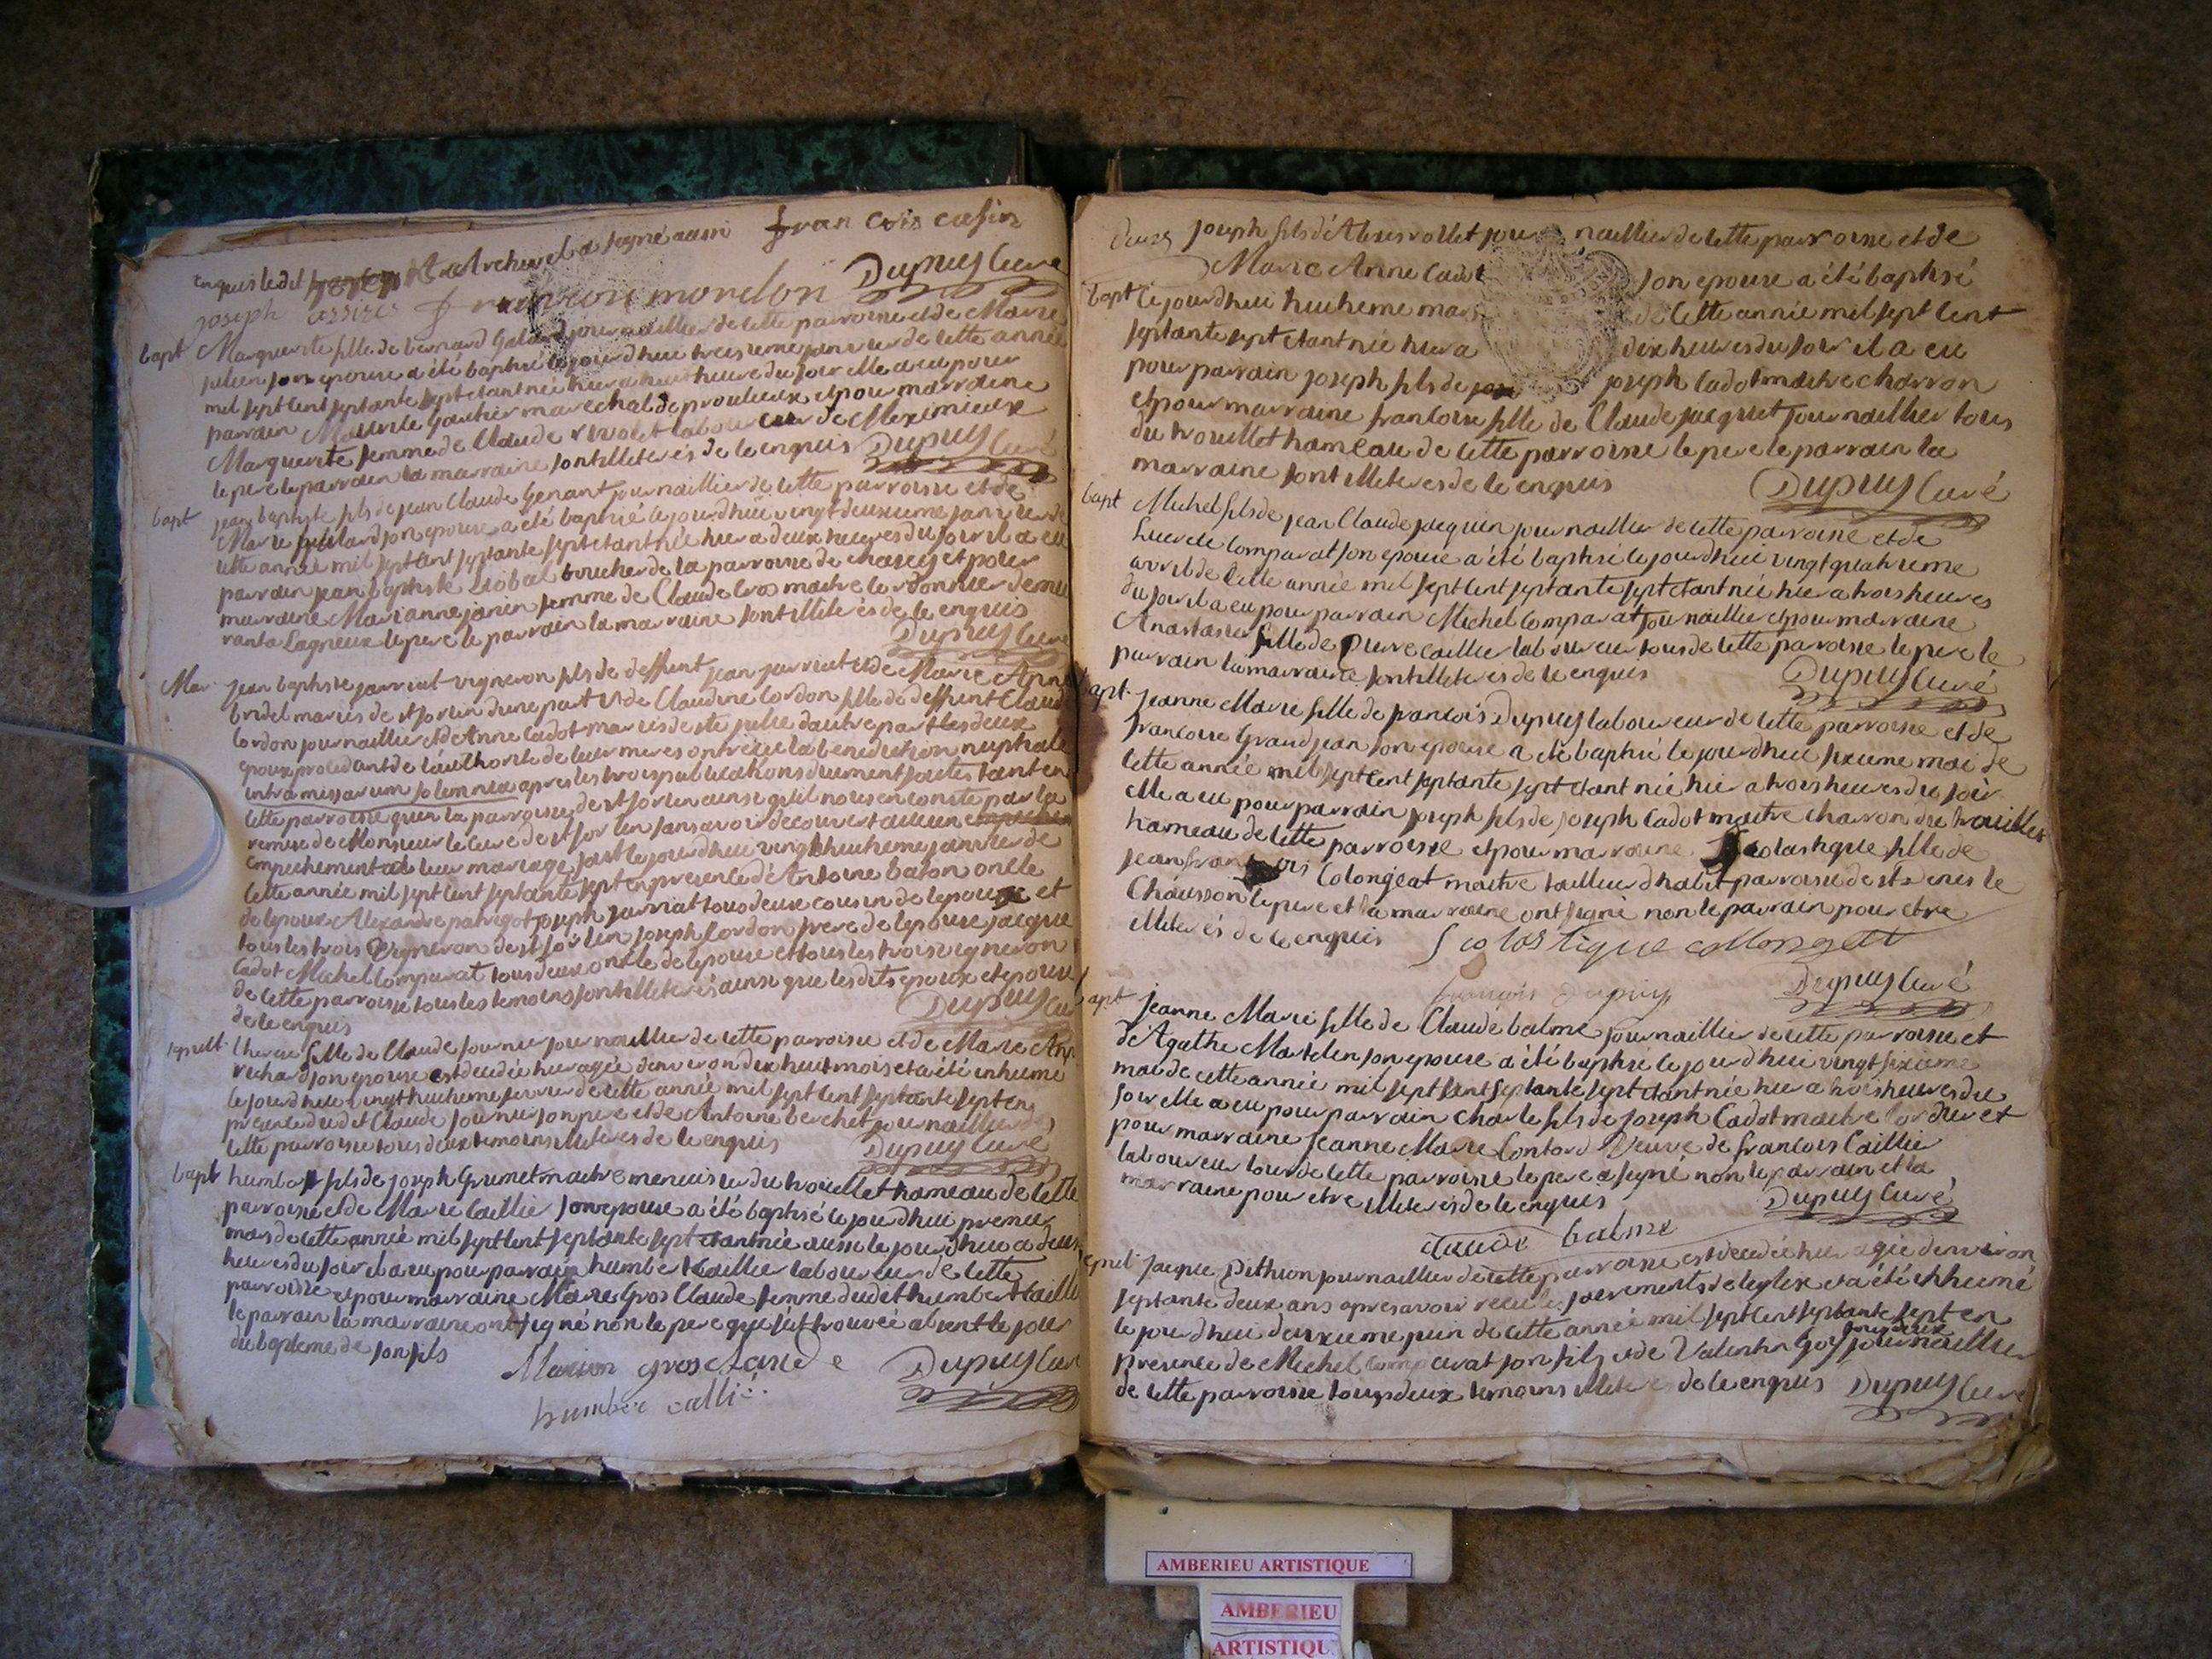 enquis ledit a signé aussi fran cois casin
joseph assisi mordon Dupuy Curé
bapt Marguerite fille de bernard journaillier de cette parroisse et de Marie
julien son epouse a été baptisé le jourdhui treisieme janvier de cette année
mil sept cent septante sept etant née hier a huit heure du soir elle a eu pour
parrain Gautier marechal de proulieux et pour marraine
Marguerite femme de Claude rivolet laboureur de Meximieux
le pere le parrain la marraine sont illeterés de ce enquis Dupuy Curé
bapt jean baptiste fils de jean Claude Genant journaillier de cette parroisse et de
Marie son epouse a été baptisé le jourdhui vingt deuxieme janvier de
cette année mil sept cent septante sept etant née hier a deux heures du soir il a eu
parrain jean baptiste boucher de la parroisse de charey et pour
marraine Marianne janin femme de Claude Cros maitre cordonnier demeu
rant a Lagnieux le pere le parrain la marraine sont illeterés de ce enquis
Dupuy Curé
Mar jean baptiste jarriat vigneron fils de deffunt jean jarriat et de Marie Anne
bridel mariés de st sorlin dune part et de Claudine Cordon fille de deffunt Claude
Cordon journaillier et de Anne Cadot mariés de ste julie dautre part les deux
epoux procedant de lauthorité de leur meres ont reçu la benediction nuptiale
intra missarum solemnia apres les trois publications duement faites tant en
cette parroisse quen la parroisse de st sorlin ainsi quil nous en conste par la
remise de Monsieur le Curé de st sorlin sans avoir decouvert aucun
empechement a leur mariage fait le jourdhui vingt huitieme janvier de
cette année mil sept cent septante sept en presence de Antoine baton oncle
de lepoux Alexandre patrigot joseph jarriat tous deux cousin de lepoux et
tous les trois vigneron de st sorlin joseph Cordon frere de lepouse jacque
Cadot Michel Comparat tous deux oncle de lepouse et tous les trois vigneron
de cette parroisse tous les temoins sont illeterés ainsi que lesdits epoux et epouse
de ce enquis Dupuy Cu
sepult therese fille de Claude fournier journaillier de cette parroisse et de Marie Anne
richard son epouse est decedée hier agée denviron dix huit mois et a été inhumé
le jourdhui vingt huitieme fevrier de cette année mil sept cent septante sept en
presence dudit Claude fournier son pere et de Antoine berchet journaillier de
cette parroisse tous deux temoins illeterés de ce enquis Dupuy Curé
bapt humbert fils de joseph Grumet maitre menuisier du trouillet hameau de cette
parroisse et de Marie Caillier son epouse a été baptisé le jourdhui premier
mars de cette année mil sept cent septante sept etant née aussi le jourdhui a deux
heures du soir il a eu pour parrain humbert Caillier laboureur de cette
parroisse et pour marraine Marie Gros Claude femme dudit humbert Caillie
le parrain la marraine ont signé non le pere qui sest trouvée absent le jour
du bapteme de son fils
Marion gros clande Dupuy Curé
humber callié
joseph fils de Alexis rollet jour naillier de cette parroisse et de
Marie Anne Cadot son epouse a été baptisé
bapt le jourdhui huitieme mars de cette année mil sept cent
septante sept etant née hier a dix heures du soir il a eu
pour parrain joseph fils de joseph Cadot maitre charron
et pour marraine francoise fille de Claude jacquet journaillier tous
du trouillet hameau de cette parroisse le pere le parrain la
marraine sont illeterés de ce enquis Dupuy Curé
bapt Michel fils de jean Claude jacquin journaillier de cette parroisse et de
Lucrece Comparat son epouse a été baptisé le jourdhui vingt quatrieme
avril de cette année mil sept cent septante sept etant née hier a trois heures
du soir il a eu pour parrain Michel Comparat journaillier et pour marraine
Anastasie fille de Pierre Caillier laboureur tous de cette parroisse le pere le
parrain la marraine sont illeterés de ce enquis Dupuy Curé
apt jeanne Marie fille de francois Dupuy laboureur de cette parroisse et de
francoise Grandjean son epouse a été baptisé le jourdhui sixieme mai de
cette année mil sept cent septante sept etant née hier a trois heures du soir
elle a eu pour parrain joseph fils de joseph Cadot maitre charon du trouillet
hameau de cette parroisse et pour marraine Scolastique fille de
jean francois Colongeat maitre tailleur dhabit parroisse de st denis le
Chausson le pere et la marraine ont signé non le parrain pour etre
illeterés de ce enquis Scolastique collongeat
francois Dupuy Dupuy Curé
apt jeanne Marie fille de Claude balme journaillier de cette parroisse et
de Agathe Martelin son epouse a été baptisé le jourdhui vingt sixieme
mai de cette année mil sept cent septante sept etant née hier a trois heures du
soir elle a eu pour parrain charle fils de joseph Cadot maitre et
pour marraine jeanne Marie Contard Veuve de francois Caillie
laboureur tous de cette parroisse le pere a signé non le parrain et la
marraine pour etre illeterés de ce enquis Dupuy Curé
claude balme
epul jacque Pithion journaillier de cette parroisse est decedé hier agée denviron
septante deux ans apres avoir recu les sacrements de leglise et a été inhumé
le jourdhui deuxieme juin de cette année mil sept cent septante sept en
presence de Michel son fils et de Valentin Goy journaillier
de cette parroisse tous deux temoins illeterés de ce enquis Dupuy Curé
AMBERIEU ARTISTIQUE
AMBERIEU
ARTISTIQU